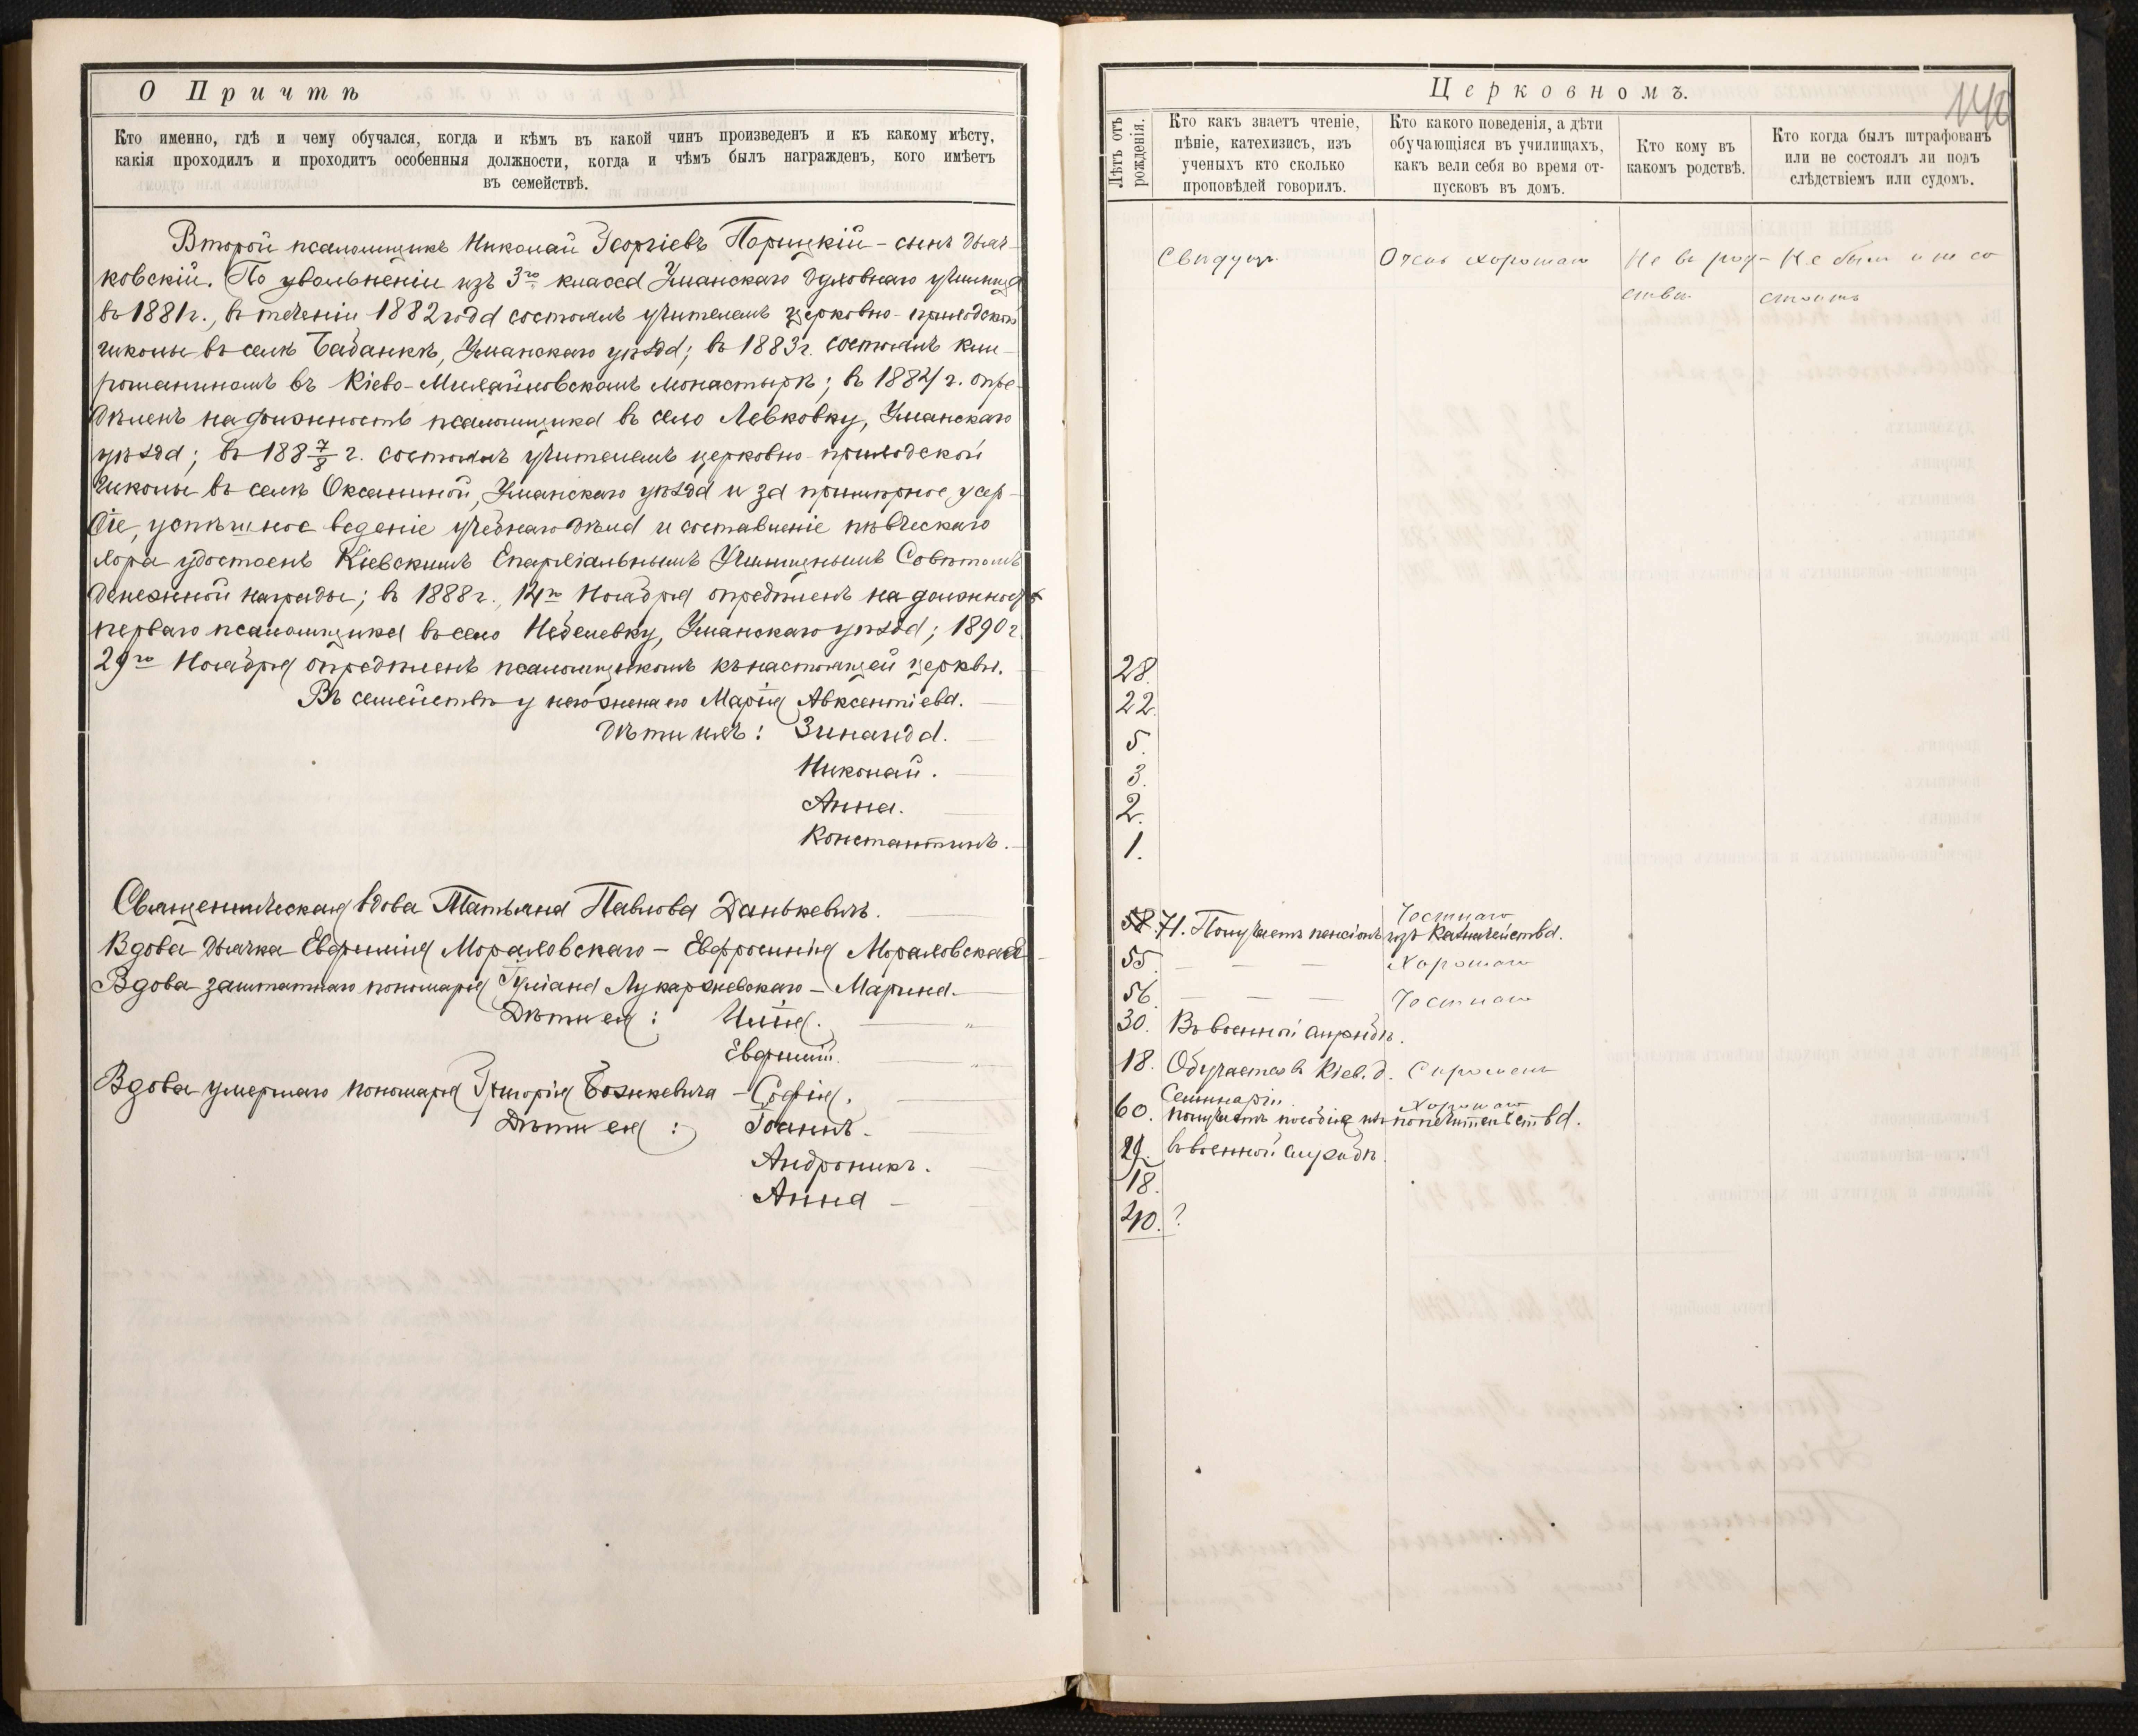 О Причтѣ
Кто именно, гдѣ и чему обучался, когда и кѣмъ въ какой чинъ произведенъ и къ какому мѣсту,
какія проходилъ и проходитъ особенныя должности, когда и чѣмъ былъ награжденъ, кого имѣетъ
въ семействѣ.
Второй псаломщикъ Николай Георгіевъ Порицкій – сынъ дьяч-
ковскій. По увольненіи изъ 3го класса Уманскаго духовнаго училища
въ 1881 г., въ теченіи 1882 года состоялъ учителемъ церковно-приходской
школы въ селѣ Бабанкѣ, Уманскаго уѣзда; въ 1883 г. состоялъ кли-
рошаниномъ въ Кіево-Михайловскомъ монастырѣ; въ 1884 г. опре-
дѣленъ на должность псаломщика въ село Левковку, Уманскаго
уѣзда; въ 188 7/8 г. состоялъ учителемъ церковно-приходской
школы въ селѣ Оксаниной, Уманскаго уѣзда и за примѣрное усер-
діе, успѣшное веденіе учебнаго дѣла и составленіе пѣвческаго
хора удостоенъ Кіевскимъ Епархіальнымъ Училищнымъ Совѣтомъ
денежной награды; въ 1888 г., 14го Ноября опредѣленъ на должность
перваго псаломщика въ село Небелевку, Уманскаго уѣзда; 1890 г.
29го Ноября опредѣленъ псаломщикомъ къ настоящей церкви.
Въ семействѣ у него жена его Марія Авксентіева.
Дѣти ихъ: Зинаида.
Николай.
Анна.
Константинъ.
Священническая вдова Татьяна Павлова Данькевичъ.
Вдова дьячка Евфимія Мораховскаго – Евфросинія Мораховская
Вдова заштатнаго пономаря Іуліана Лукаржевскаго – Марина.
Дѣти ея: Илія. „
Евфимій. „
Вдова умершаго пономаря Григорія Божкевича – Софія.
Дѣти ея: Іоаннъ.
Андроникъ.
Анна
Церковномъ.
Лѣтъ отъ рожденія.
Кто какъ знаетъ чтеніе,
пѣніе, катехизисъ, изъ
ученыхъ кто сколько
проповѣдей говорилъ.
Кто какого поведенія, а дѣти
обучающіяся въ училищахъ,
какъ вели себя во время от-
пусковъ въ домъ.
Кто кому въ
какомъ родствѣ.
Кто когда былъ штрафованъ
или не состоялъ ли подъ
слѣдствіемъ или судомъ.
Свѣдущъ Очень хорошаго Не въ род- Не былъ и не со
ствѣ стоитъ
28.
22.
5.
3.
2.
1.
Честнаго
58. 71. Получаетъ пенсіонъ изъ Казначейства.
55 Хорошаго
56. Честнаго
30. Въ военной службѣ.
18. Обучается въ Кіев. д. Скроменъ
Семинаріи. Хорошаго
60. Получаетъ пособіе изъ попечительства.
29. въ военной службѣ.
18.
20. ?